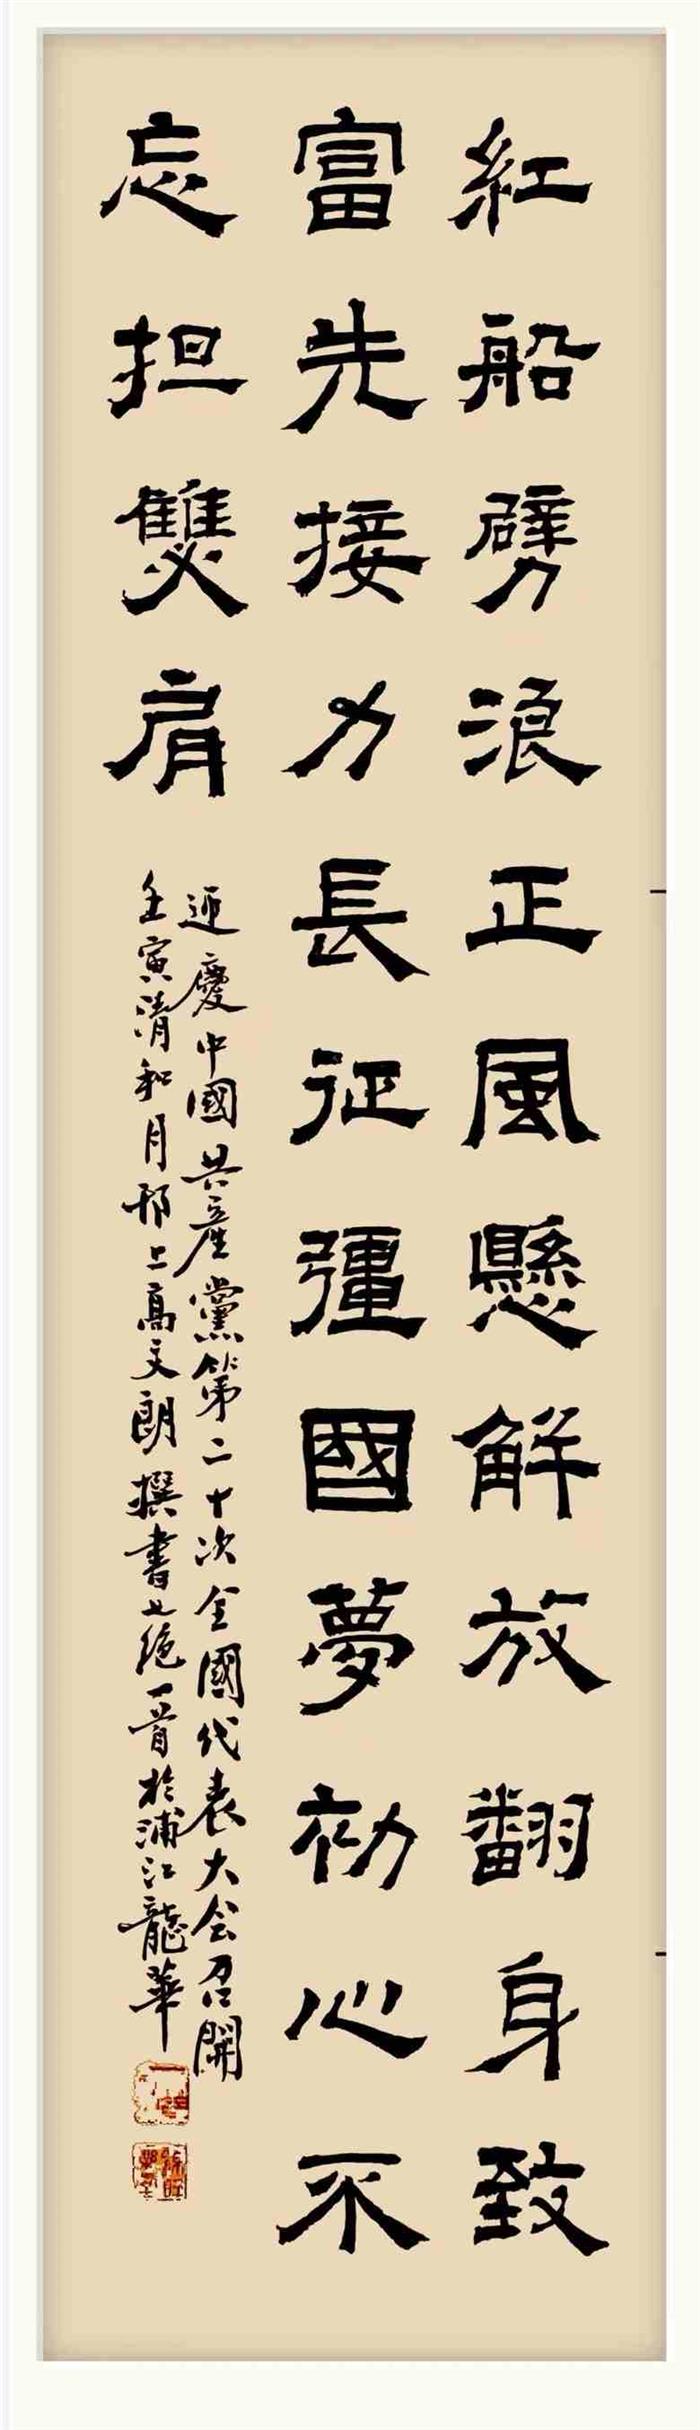 紅船劈浪正風懸解放翻身致
富先接力長征彊國夢初心不
忘担雙肩
迎慶中國共產黨第二十次全國代表大会召開
壬寅清和月邗上高文朗撰書七绝一首於浦江龍華